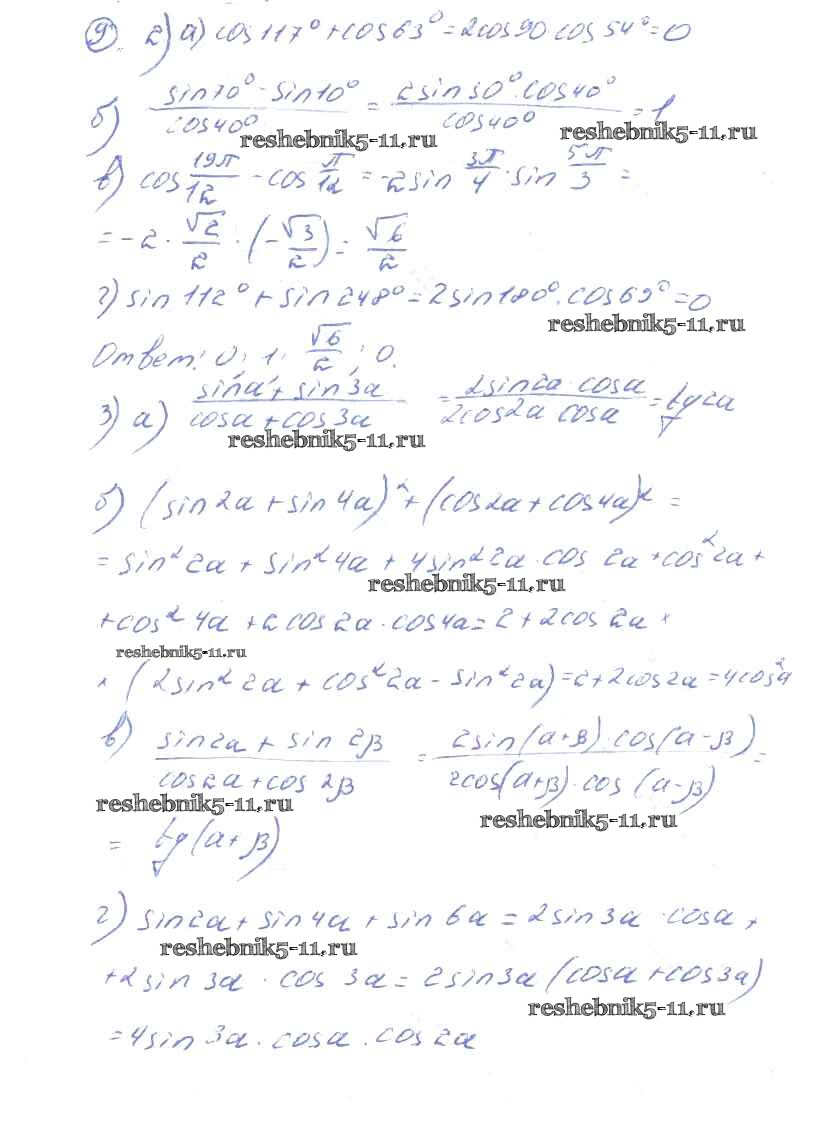 9. 2) а) cos 117° + cos 63° = 2cos 90 cos 54° = 0
б) (sin 70° - sin 10°)/(cos 40°) = (2 sin 30° · cos 40°)/(cos 40°) = 1
reshebnik5-11.ru reshebnik5-11.ru
в) cos 19π/12 - cos π/12 = -2 sin 3π/4 · sin 5π/3 =
= -2 · √2/2 · (-√3/2) = √6/2
г) sin 112° + sin 248° = 2 sin 180° · cos 69° = 0
reshebnik5-11.ru
Ответ: 0; 1; √6/2; 0.
3) а) (sin a + sin 3a)/(cos a + cos 3a) = (2 sin 2a · cos a)/(2 cos 2a cos a) = tg 2a
reshebnik5-11.ru
б) (sin 2a + sin 4a)² + (cos 2a + cos 4a)² =
= sin² 2a + sin² 4a + 4 sin² 2a · cos 2a + cos² 2a +
reshebnik5-11.ru
+ cos² 4a + 2 cos 2a · cos 4a = 2 + 2 cos 2a ×
reshebnik5-11.ru
× (2 sin² 2a + cos² 2a - sin² 2a) = 2 + 2 cos 2a = 4 cos² a
в) (sin 2a + sin 2β)/(cos 2a + cos 2β) = (2 sin (a+β) · cos (a-β))/(2 cos (a+β) · cos (a-β)) =
reshebnik5-11.ru reshebnik5-11.ru
= tg (a + β)
г) sin 2a + sin 4a + sin 6a = 2 sin 3a · cos a +
reshebnik5-11.ru
+ 2 sin 3a · cos 3a = 2 sin 3a (cos a + cos 3a)
reshebnik5-11.ru
= 4 sin 3a · cos a · cos 2a